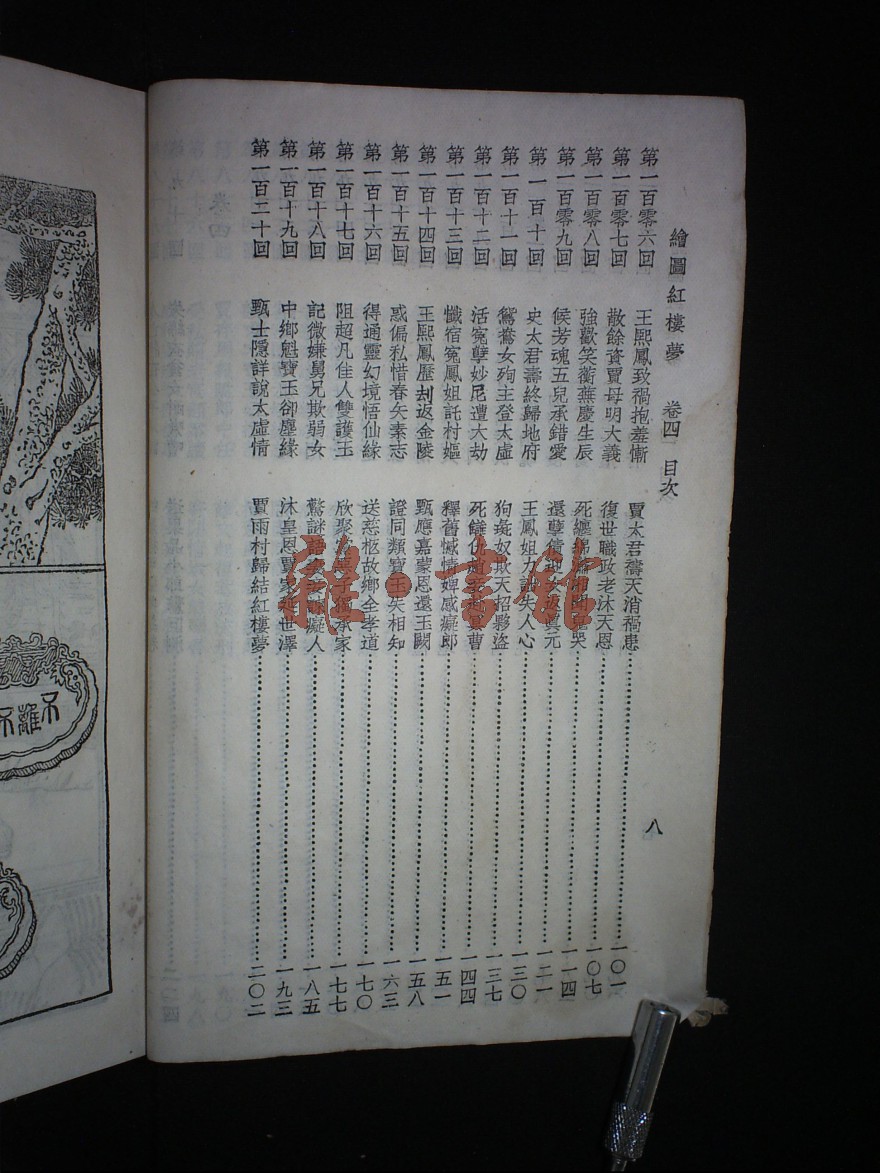 繪圖紅樓夢 卷四 目次 八
第一百零六回 王熙鳳致禍抱羞慚 賈太君禱天消禍患 一〇一
第一百零七回 散餘資賈母明大義 復世職政老沐天恩 一〇七
第一百零八回 強歡笑蘅蕪慶生辰 死纏綿瀟湘聞鬼哭 一一四
第一百零九回 候芳魂五兒承錯愛 還孽債迎女返眞元 一二一
第一百十回 史太君壽終歸地府 王鳳姐力詘失人心 一三〇
第一百十一回 鴛鴦女殉主登太虛 狗彘奴欺天招夥盜 一三七
第一百十二回 活冤孽妙尼遭大劫 死讎仇趙妾赴冥曹 一四四
第一百十三回 懺宿冤鳳姐託村嫗 釋舊憾情婢感癡郎 一五一
第一百十四回 王熙鳳歷刦返金陵 甄應嘉蒙恩還玉闕 一五八
第一百十五回 惑偏私惜春矢素志 證同類寶玉失相知 一六三
第一百十六回 得通靈幻境悟仙緣 送慈柩故鄉全孝道 一七〇
第一百十七回 阻超凡佳人雙護玉 欣聚黨惡子獨承家 一七七
第一百十八回 記微嫌舅兄欺弱女 驚謎語妻妾諫癡人 一八五
第一百十九回 中鄉魁寶玉卻塵緣 沐皇恩賈家延世澤 一九三
第一百二十回 甄士隱詳說太虛情 賈雨村歸結紅樓夢 二〇二
不離不
雜·書館